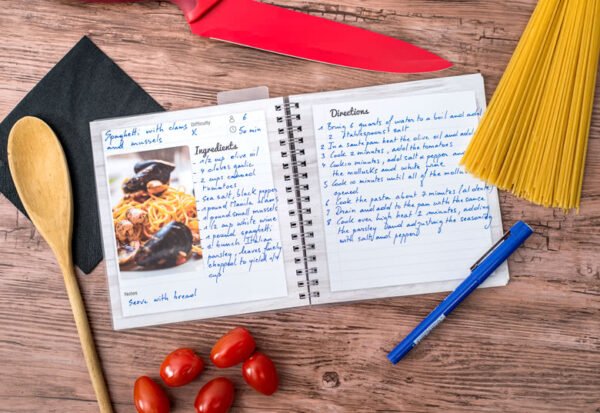 Spaghetti with clams
and mussels
Difficulty
X
6
50 min
Ingredients
- 1/2 cup olive oil
- 4 cloves garlic
- 2 cups canned
tomatoes
- sea salt, black pepper
- 1 pound Manila clams
- 1 pound small mussels
- 1/2 cup white wine
- 1 pound spaghetti
- 1 bunch Italian
parsley; leaves finely
chopped to yield 1/2
cup
Notes
Serve with bread
Directions
1 Bring 6 quarts of water to a boil and add
2 tablespoons salt
2 In a saute pan heat the olive oil and add
3 Cook 2 minutes, add the tomatoes
4 Cook 10 minutes, add salt & pepper and
the mollusks and white wine
5 Cook 10 minutes until all of the mollusks
opened
6 Cook the pasta about 7 minutes (al dente)
7 Drain and add to the pan with the sauce
8 Cook over high heat 2 minutes, adding
the parsley and adjusting the seasoning
with salt and pepper